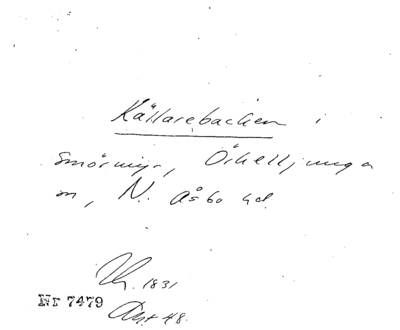 Källarebacken i
Smörmyr, Örkelljunga
sn, N. Åsbo hd.
1831
Nr 7479
Akt 48.